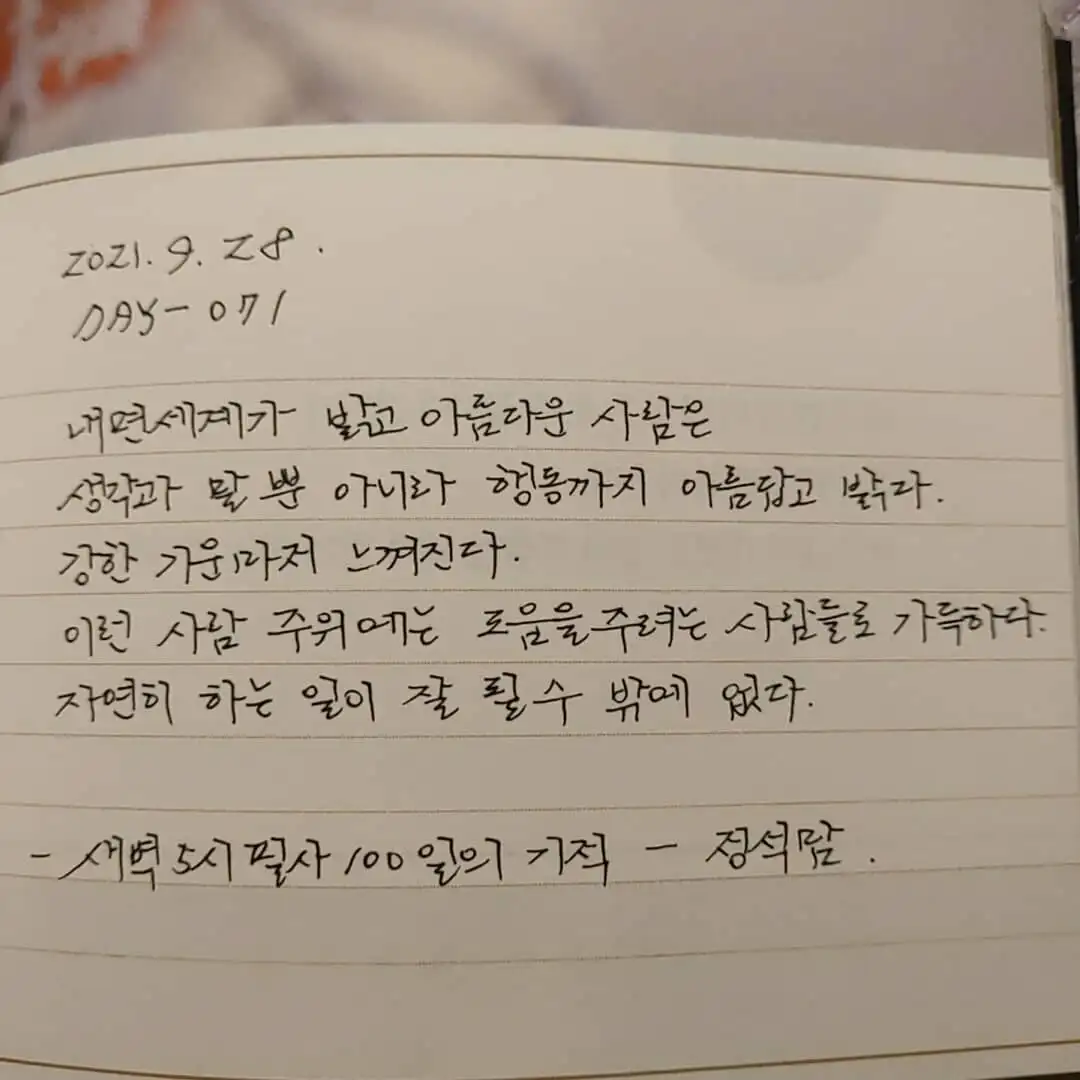 2021. 9. 28.
DAY-071
내면세계가 밝고 아름다운 사람은
생각과 말 뿐 아니라 행동까지 아름답고 밝다.
강한 기운마저 느껴진다.
이런 사람 주위에는 도움을 주려는 사람들로 가득하다.
자연히 하는 일이 잘 될 수 밖에 없다.
- 새벽 5시 필사 100일의 기적 - 정석맘.